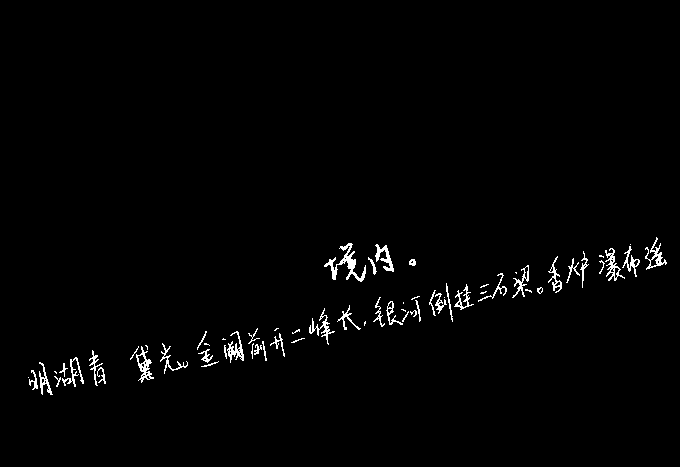 境内。
明湖青 黛光。金阙前开二峰长,银河倒挂三石梁。香炉瀑布遥